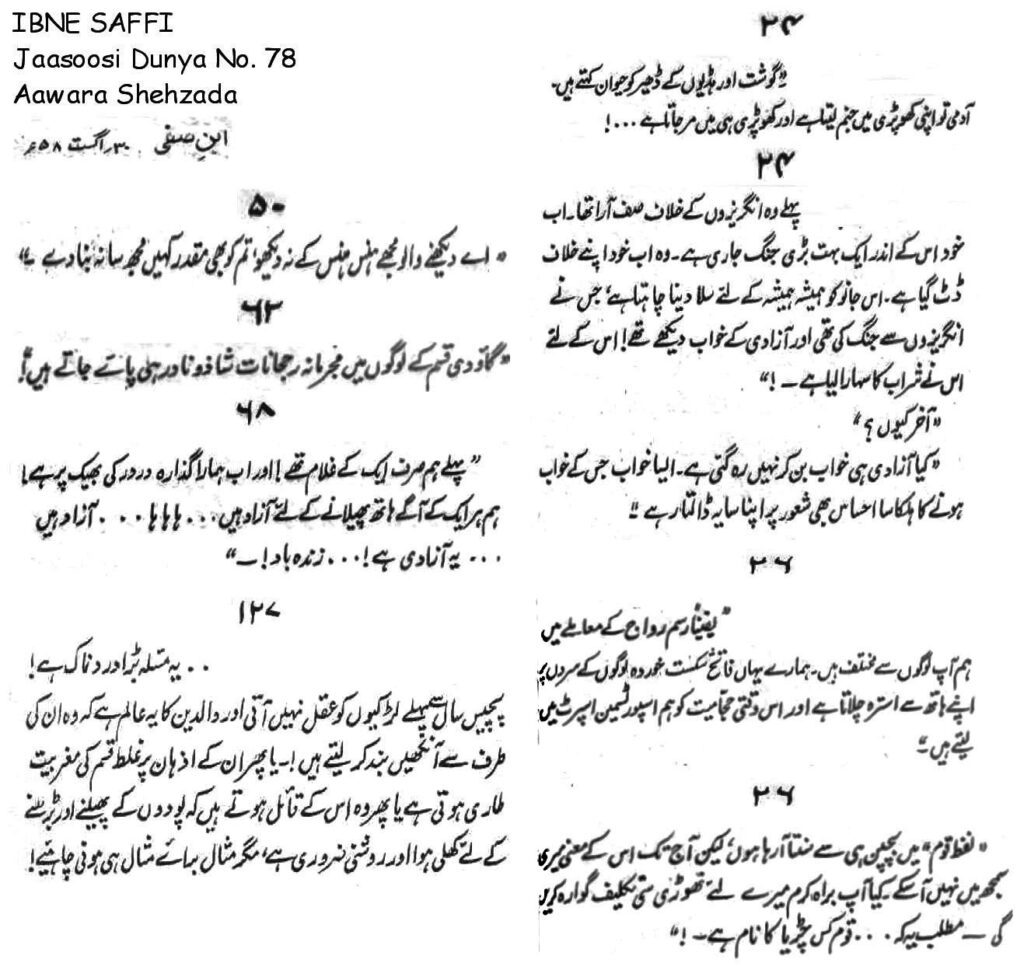 IBNE SAFFI
Jaasoosi Dunya No. 78
Aawara Shehzada
ابنِ صفی ۳۰؍اگست ۵۸ء
۵۰
"اے دیکھنے والو مجھے ہنس ہنس کے نہ دیکھو، تم کو بھی مقدر کہیں مجھ سا نہ بنا دے ۔"
۶۲
"گاؤدی قسم کے لوگوں میں مجرمانہ رجحانات شاذ و نادر ہی پائے جاتے ہیں!"
۶۸
"پہلے ہم صرف ایک کے غلام تھے! اور اب ہمارا گذارہ در در کی بھیک پر ہے!
ہم ہر ایک کے آگے ہاتھ پھیلانے کے لئے آزاد ہیں... ہاہاہا... آزاد ہیں
... یہ آزادی ہے!... زندہ باد! ۔"
۱۲۷
.. یہ مسئلہ بڑا دردناک ہے!
پچیس سال سے پہلے لڑکیوں کو عقل نہیں آتی اور والدین کا یہ عالم ہے کہ وہ ان کی
طرف سے آنکھیں بند کر لیتے ہیں!۔ یا پھر ان کے اذہان پر غلط قسم کی مغربیت
طاری ہوتی ہے یا پھر وہ اس کے قائل ہوتے ہیں کہ پودوں کے پھیلنے اور بڑھنے
کے لئے کھلی ہوا اور روشنی ضروری ہے، مگر مثال برائے مثال ہی ہونی چاہئیے!
۲۴
"گوشت اور ہڈیوں کے ڈھیر کو حیوان کہتے ہیں۔
آدمی تو اپنی کھوپڑی میں جنم لیتا ہے اور کھوپڑی ہی میں مر جاتا ہے...!
۲۴
پہلے وہ انگریزوں کے خلاف صف آرا تھا۔ اب
خود اس کے اندر ایک بہت بڑی جنگ جاری ہے۔ وہ اب خود اپنے خلاف
ڈٹ گیا ہے۔ اس جانو کو ہمیشہ ہمیشہ کے لئے سلا دینا چاہتا ہے، جس نے
انگریزوں سے جنگ کی تھی اور آزادی کے خواب دیکھے تھے! اس کے لئے
اس نے شراب کا سہارا لیا ہے ۔!"
"آخر کیوں؟"
"کیا آزادی ہی خواب بن کر نہیں رہ گئی ہے۔ ایسا خواب جس کے خواب
ہونے کا ہلکا سا احساس بھی شعور پر اپنا سایہ ڈالتا رہے۔"
۲۶
"یقیناً رسم رواج کے معاملے میں
ہم آپ لوگوں سے مختلف ہیں۔ ہمارے یہاں فاتح شکست خوردہ لوگوں کے سروں پر
اپنے ہاتھ سے استرہ چلاتا ہے اور اس وقتی حجامیت کو ہم اسپورٹسمین اسپرٹ میں
لیتے ہیں۔"
۲۶
"لفظ قوم" میں بچپن ہی سے سنتا آرہا ہوں، لیکن آج تک اس کے معنی میری
سمجھ میں نہیں آسکے۔ کیا آپ براہ کرم میرے لئے تھوڑی سی تکلیف گوارہ کریں
گی ۔ مطلب یہ کہ ... قوم کس چڑیا کا نام ہے ۔!"